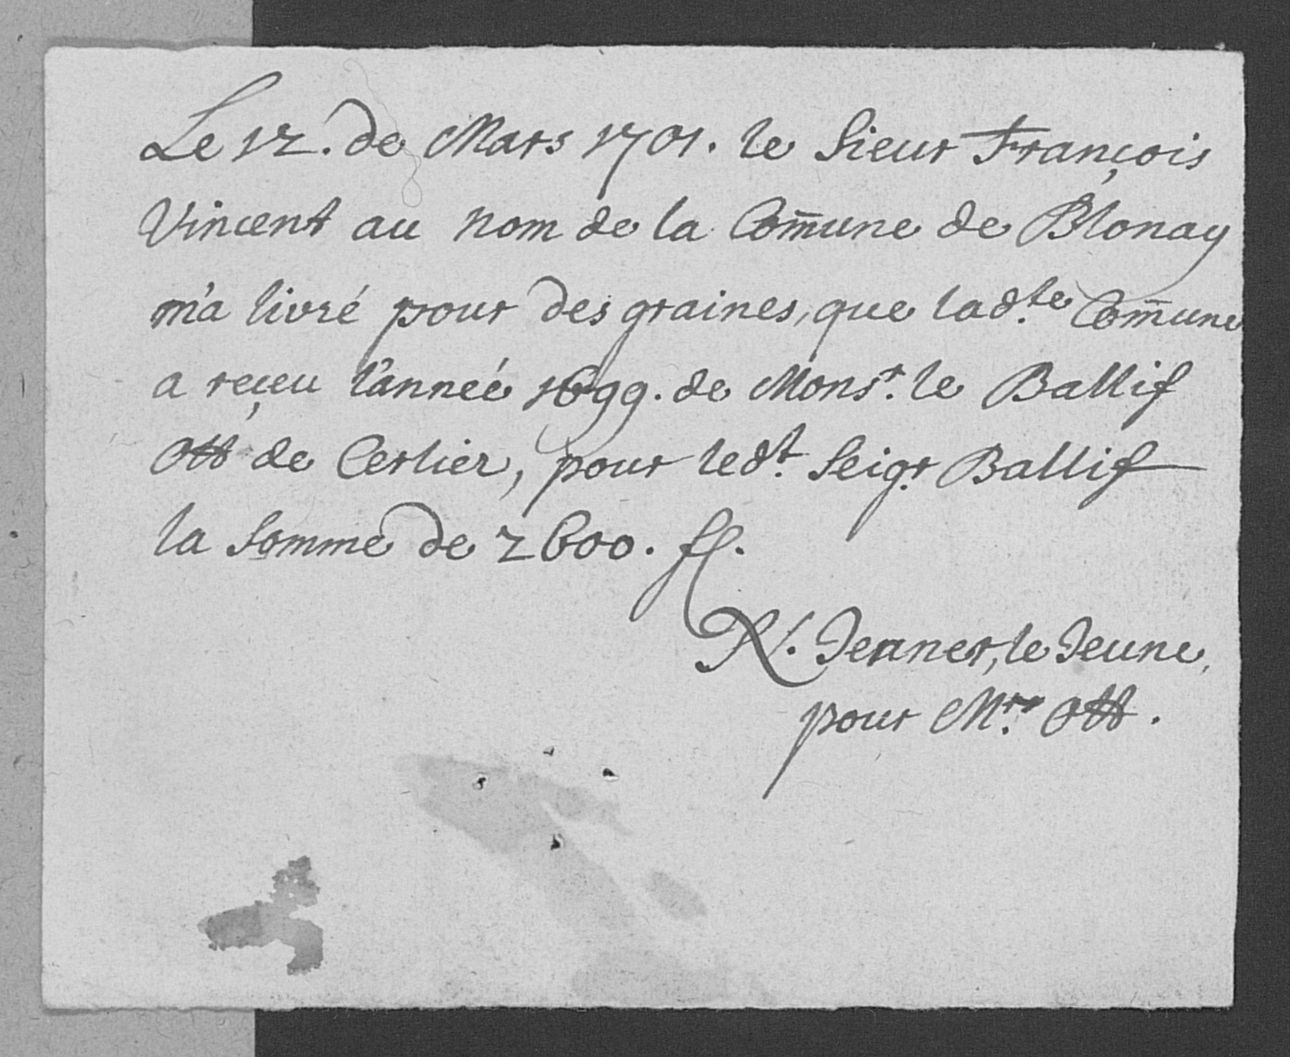 Le 12. de Mars 1701. le Sieur François
Vincent au nom de la Com̄une de Blonay
m'a livré pour des graines, que lad.te Com̄une
a reçeu l'anneé 1699. de Mons.r le Ballif
Ott de Cerlier, pour led.t Seig.r Ballif
la Somme de 2600. fl.
N. Jenner, le Jeune,
pour M.r Ott.